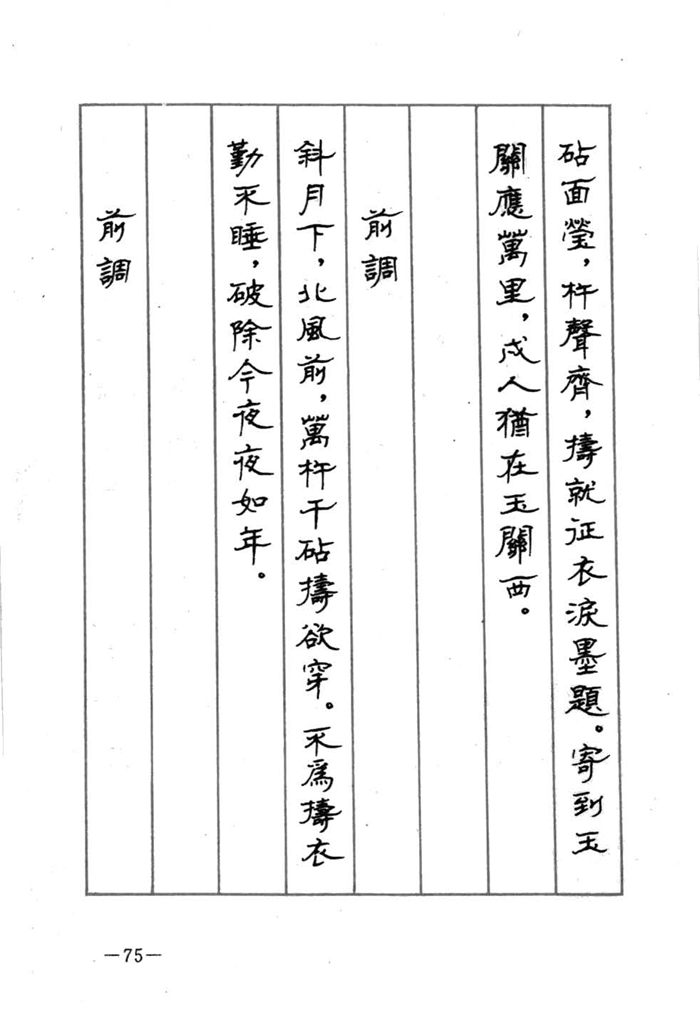 砧面瑩，杵聲齊，擣就征衣淚墨題。寄到玉
關應萬里，戍人猶在玉關西。
前調
斜月下，北風前，萬杵千砧擣欲穿。不爲擣衣
勤不睡，破除今夜夜如年。
前調
—75—